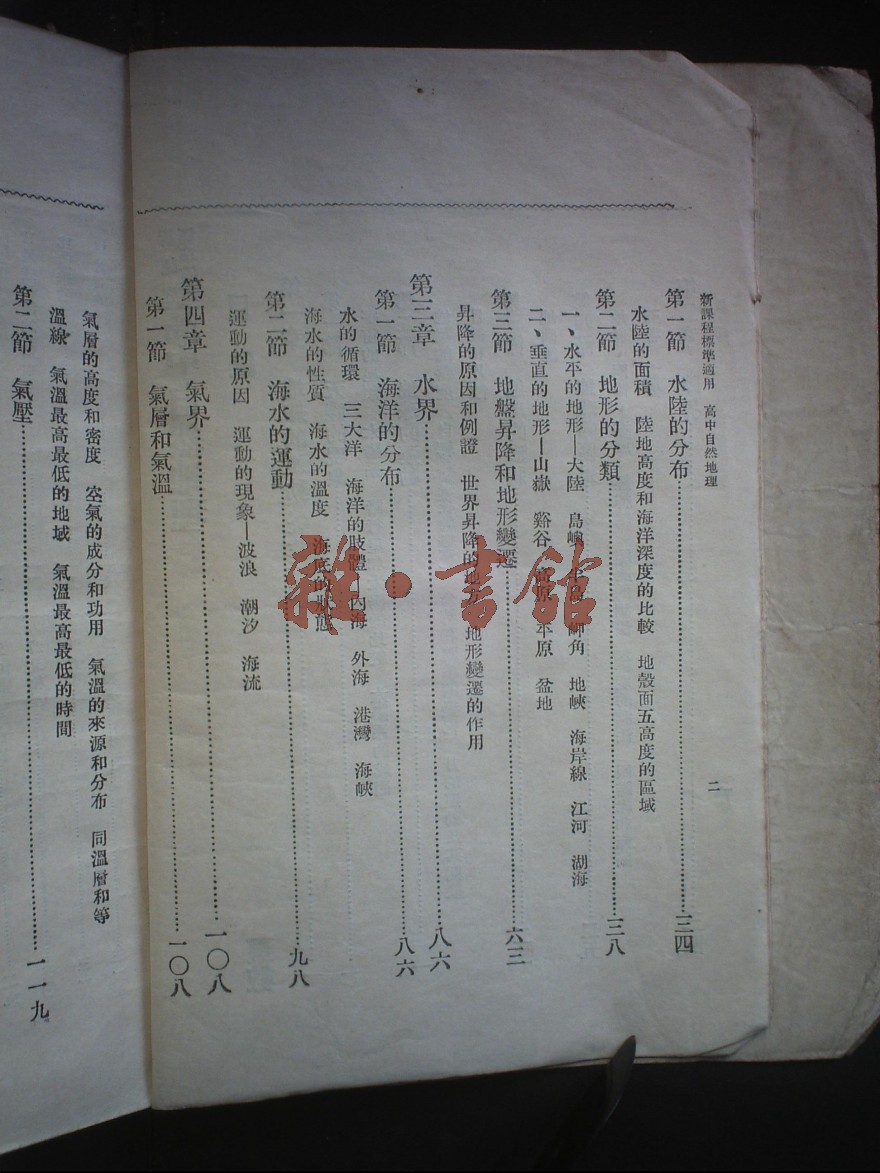 新課程標準適用　高中自然地理
二
第一節　水陸的分布……三四
水陸的面積　陸地高度和海洋深度的比較　地殼面五高度的區域
第二節　地形的分類……三八
一、水平的地形—大陸　島嶼　半島　岬角　地峽　海岸線　江河　湖海
二、垂直的地形—山嶽　谿谷　高原　平原　盆地
第三節　地盤昇降和地形變遷……六三
昇降的原因和例證　世界昇降的地方　地形變遷的作用
第三章　水界……八六
第一節　海洋的分布……八六
水的循環　三大洋　海洋的肢體　內海　外海　港灣　海峽
海水的性質　海水的溫度　海底的狀態
第二節　海水的運動……九八
運動的原因　運動的現象—波浪　潮汐　海流
第四章　氣界……一〇八
第一節　氣層和氣溫……一〇八
氣層的高度和密度　空氣的成分和功用　氣溫的來源和分布　同溫層和等
溫線　氣溫最高最低的地域　氣溫最高最低的時間
第二節　氣壓……一一九
雜·書館